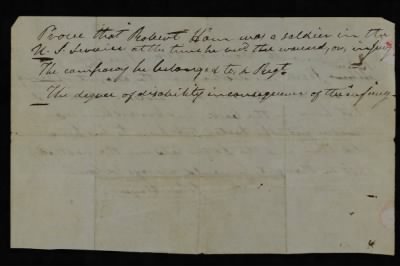 Prove that Robert Ham was a soldier in the
U. S. Service at the time he recd the wound, or injury
The company he belonged to, & Regt.
The degree of disability in consequence of the injury